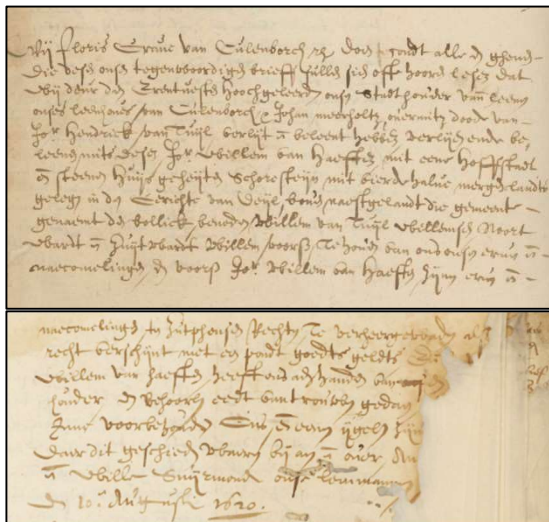 Wij Floris Grave van Culenborch etc. Doen condt alle den ghenen
die desen onsen tegenwoordigen brieff sullen sien offte hooren lesen dat
wij deur den Erentvesten hoochgeleerden onsen Stadthouder vann leenen
onses leenhoves van Culenborch Johan meerholtz overmits doode van
Jor. Hendrick van Tuijl verlijt en beleent hebben verlijen ende be-
leenen mits desen Jor. Willem van Haefften mit eene Hoffstadt
en steenen Huijs geheyten Schoresteijn mit vierdehalve mergen landts
gelegen in den Gerichte van Deijl, boven naestgelandt die gemeent
genaemt de Bollick beneden Willem van Tuijl Willemsen Noort
waert en Zuijtwardt Willem voorss. Te houden van ons onsen erven en
naecomelingen den voorss Jor. Willem van Haefften sijnen erven en
naecomelingen tot Zutphensen Rechten Te verheergewaden als
recht verschijnt met een pondt goedts geldts
Willem van Haefften heeft ons aen handen van
houder den behoorl. eedt van trouwen gedaen
voorbehouden ons en eenen ijgelijcken sijn
Daer dit geschieden waeren bij aen en over
en Wille Suijrmondt onse leenmannen
den 10 Augusti 1620.